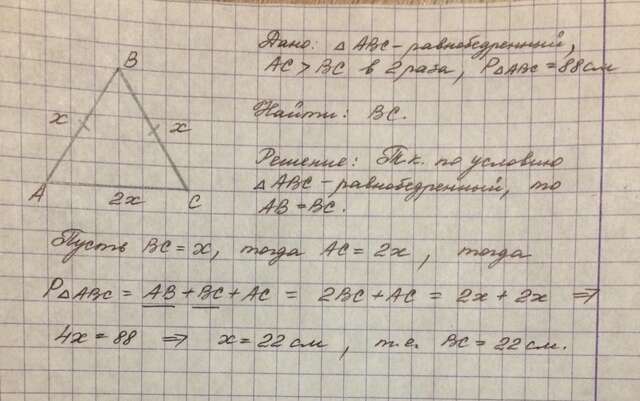 Дано: △ABC - равнобедренный,
AC > BC в 2 раза, P△ABC = 88 см
Найти: BC.
Решение: Т.к. по условию
△ABC - равнобедренный, то
AB = BC.
A
x
B
x
C
2x
Пусть BC = x, тогда AC = 2x, тогда
P△ABC = AB + BC + AC = 2BC + AC = 2x + 2x ⇒
4x = 88 ⇒ x = 22 см, т.е. BC = 22 см.